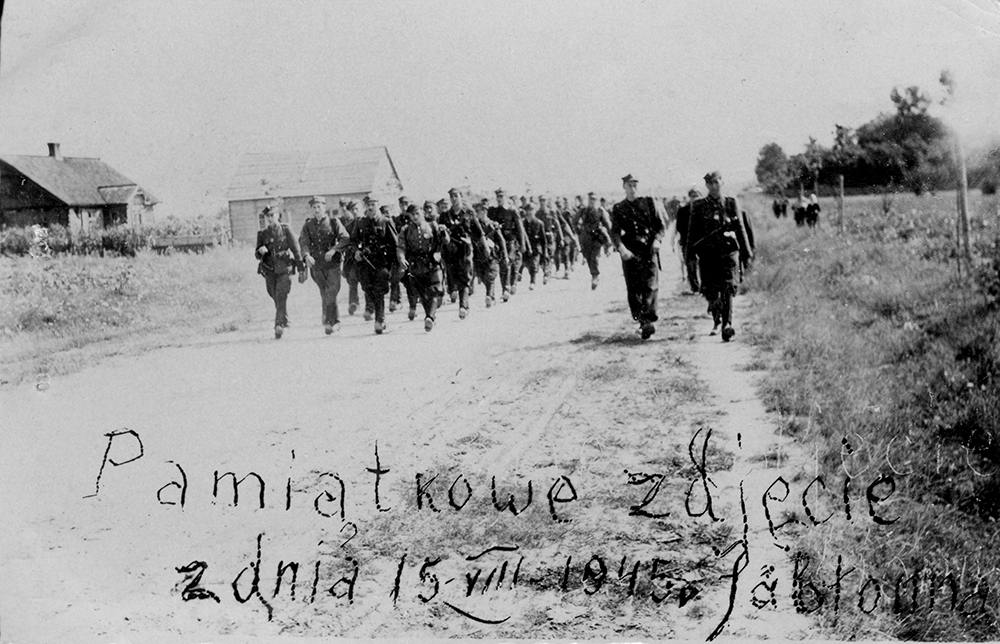 Pamiątkowe zdjęcie
z dnia 15-VIII-1945. Jabłonna